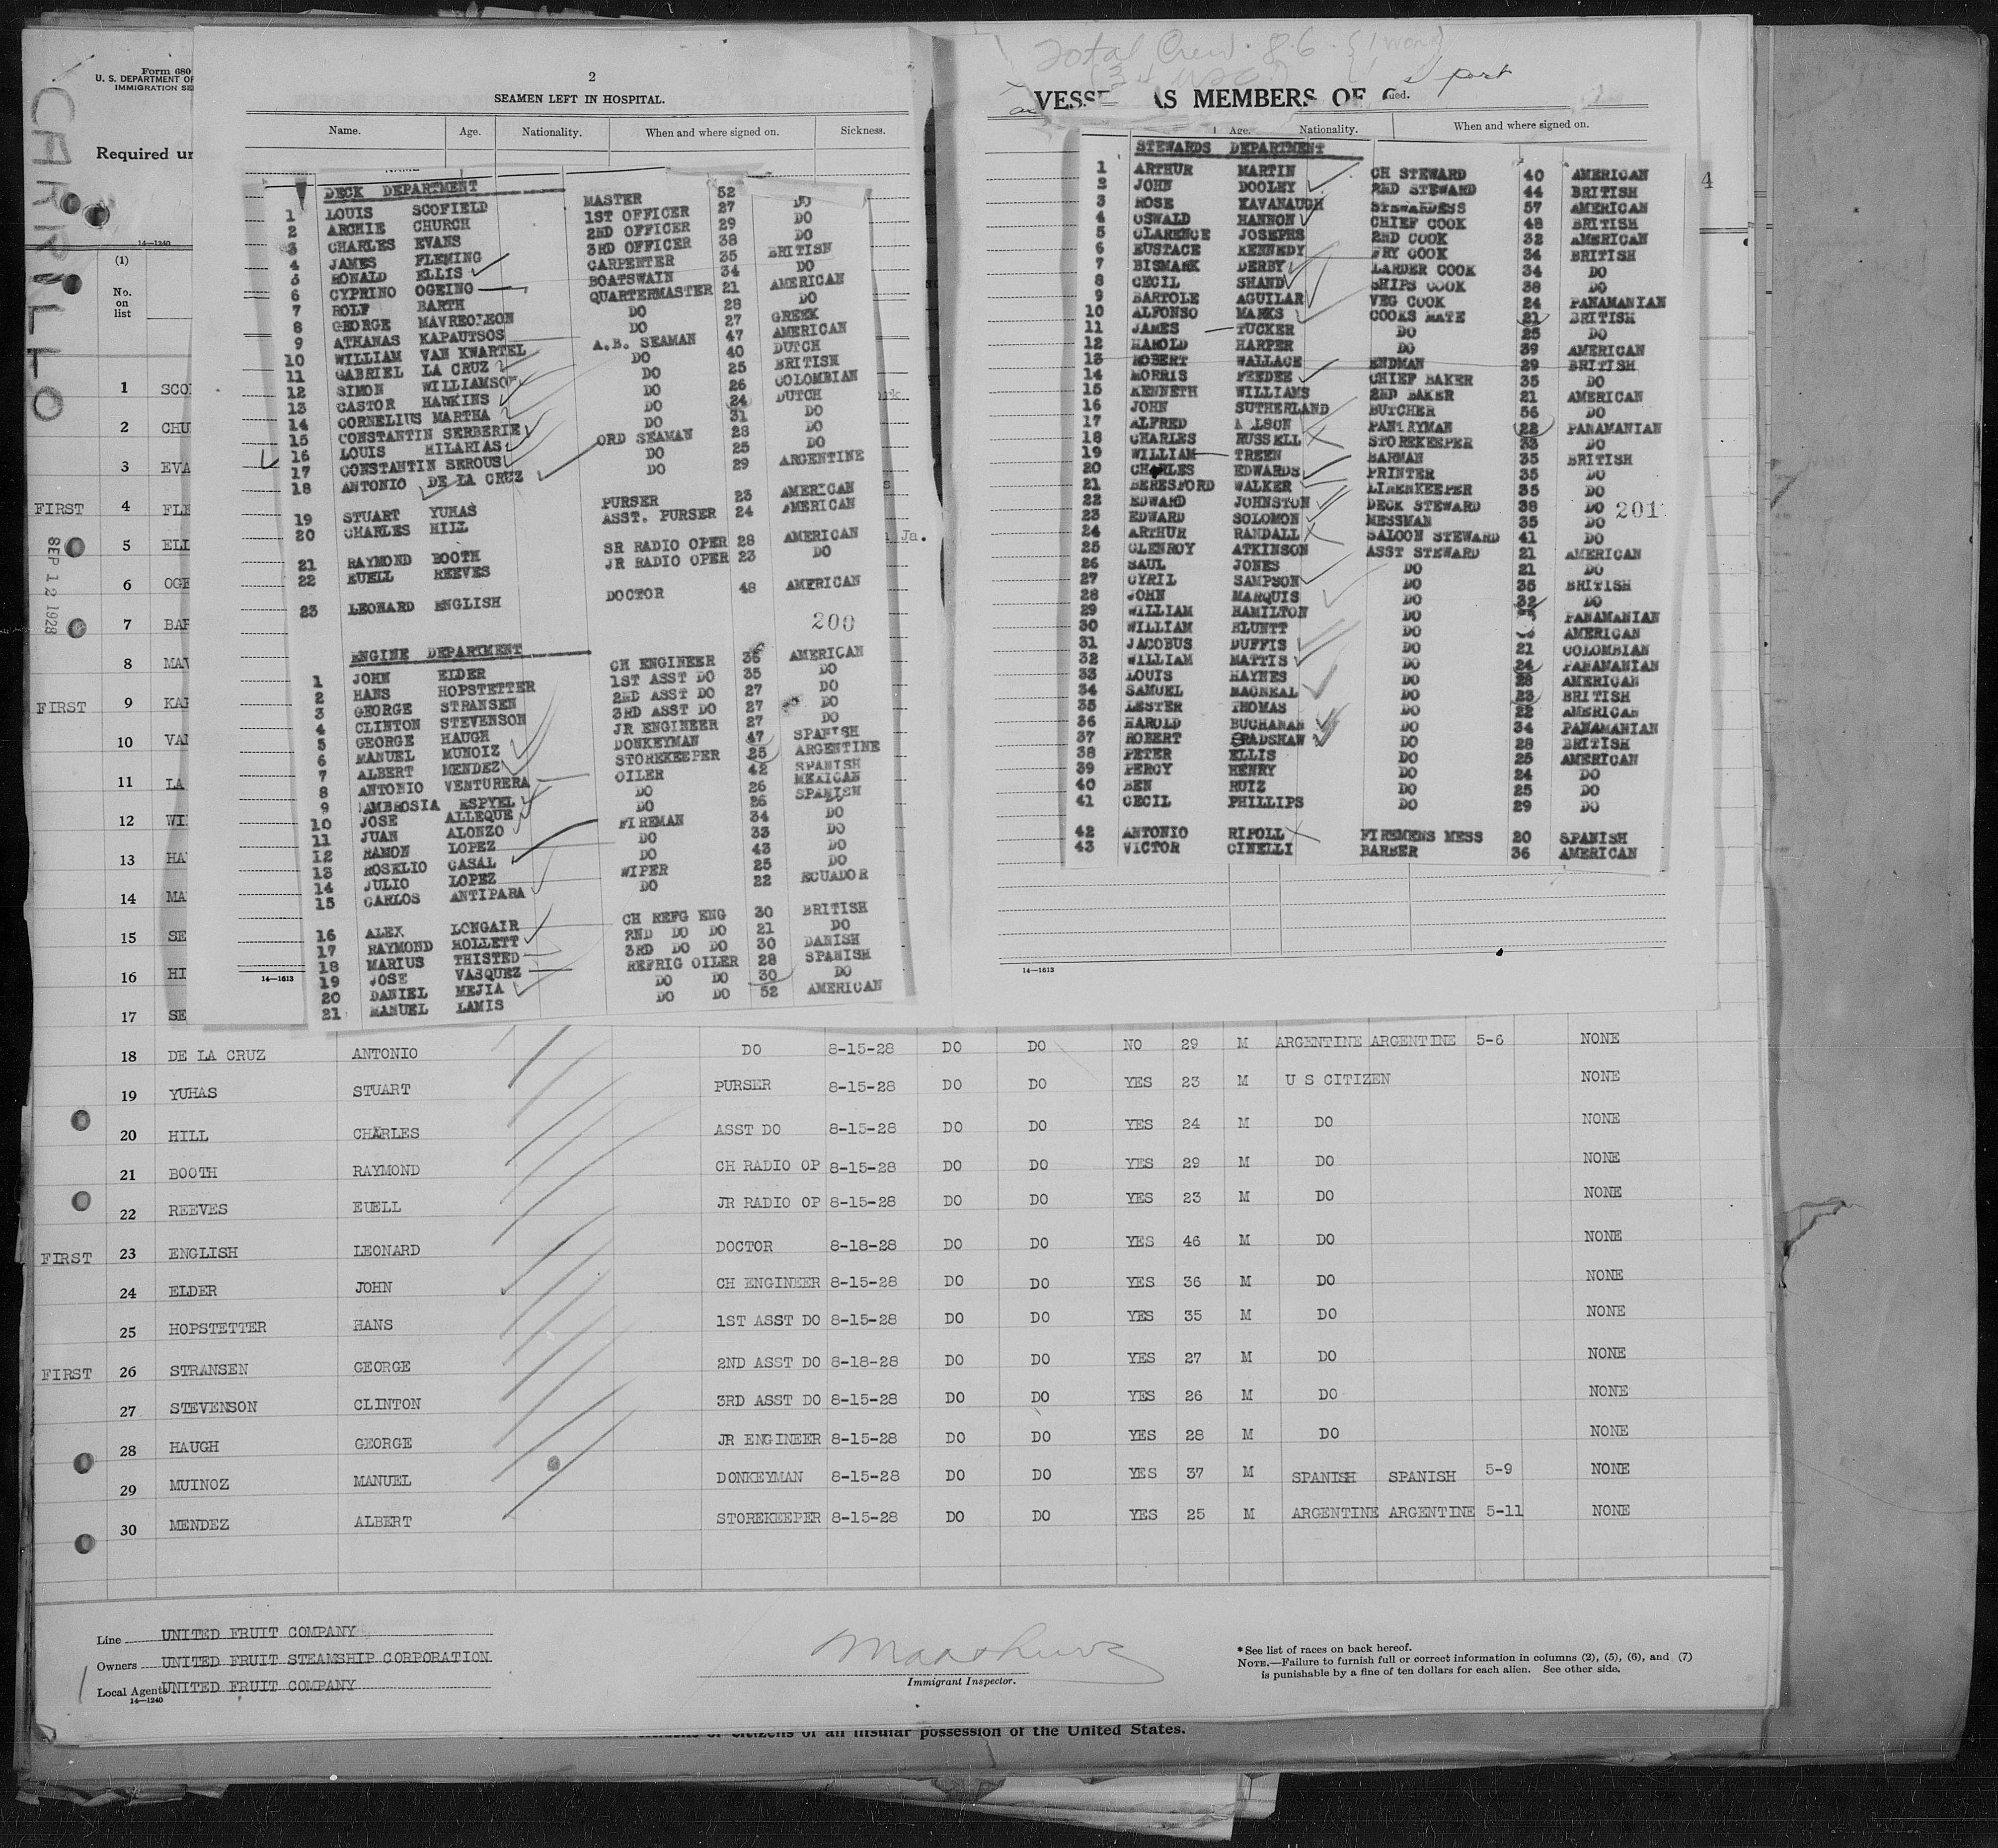 Form 680
U. S. DEPARTMENT OF
IMMIGRATION SE
CARRILLO
Required un
14—1240
(1)
No.
on
list
SEP 12 1928
1 SCO
2 CHU
3 EVA
FIRST 4 FLE
5 ELL
6 OGE
7 BAR
8 MAV
FIRST 9 KAP
10 VAN
11 LA
12 WI
13 HA
14 MA
15 SE
16 HI
17 SE
2
SEAMEN LEFT IN HOSPITAL.
Name. Age. Nationality. When and where signed on. Sickness.
DECK DEPARTMENT
1 LOUIS SCOFIELD MASTER 52 DO
2 ARCHIE CHURCH 1ST OFFICER 27 DO
3 CHARLES EVANS 2ND OFFICER 29 DO
4 JAMES FLEMING 3RD OFFICER 38
5 RONALD ELLIS CARPENTER 35 BRITISH
6 CYPRINO OGEINO BOATSWAIN 34 DO
7 ROLF BARTH QUARTERMASTER 21 AMERICAN
8 GEORGE MAVREOLEON DO 28 DO
9 ATHANAS KAPAUTSOS DO 27 GREEK
10 WILLIAM VAN KWARTEL A.B. SEAMAN 47 AMERICAN
11 GABRIEL LA CRUZ DO 40 DUTCH
12 SIMON WILLIAMSON DO 25 BRITISH
13 CASTOR HAWKINS DO 26 COLOMBIAN
14 CORNELIUS MARTHA DO 24 DUTCH
15 CONSTANTIN SERBERIE DO 31 DO
16 LOUIS HILARIAS ORD SEAMAN 28 DO
17 CONSTANTIN SEROUS DO 25 DO
18 ANTONIO DE LA CRUZ DO 29 ARGENTINE
19 STUART YUHAS PURSER 23 AMERICAN
20 CHARLES HILL ASST. PURSER 24 AMERICAN
21 RAYMOND BOOTH SR RADIO OPER 28 AMERICAN
22 EUELL REEVES JR RADIO OPER 23 DO
23 LEONARD ENGLISH DOCTOR 48 AMERICAN
200
ENGINE DEPARTMENT
1 JOHN ELDER CH ENGINEER 36 AMERICAN
2 HANS HOPSTETTER 1ST ASST DO 35 DO
3 GEORGE STRANSEN 2ND ASST DO 27 DO
4 CLINTON STEVENSON 3RD ASST DO 27 DO
5 GEORGE HAUGH JR ENGINEER 27 DO
6 MANUEL MUNOIZ DONKEYMAN 47 SPANISH
7 ALBERT MENDEZ STOREKEEPER 25 ARGENTINE
8 ANTONIO VENTURERA OILER 42 SPANISH
9 AMBROSIA ESPYEL DO 26 MEXICAN
10 JOSE ALLEQUE DO 26 SPANISH
11 JUAN ALONZO FIREMAN 34 DO
12 RAMON LOPEZ DO 33 DO
13 ROSELIO CASAL DO 43 DO
14 JULIO LOPEZ WIPER 25 DO
15 CARLOS ANTIPARA DO 22 ECUADOR
16 ALEX LONGAIR CH REFG ENG 30 BRITISH
17 RAYMOND HOLLETT 2ND DO DO 21 DO
18 MARIUS THISTED 3RD DO DO 30 DANISH
19 JOSE VASQUEZ REFRIG OILER 28 SPANISH
20 DANIEL MEJIA DO DO 30 DO
21 MANUEL LAMIS DO DO 52 AMERICAN
14—1613
Total Crew 86
port
VESSE AS MEMBERS OF C ued.
Age. Nationality. When and where signed on.
STEWARDS DEPARTMENT
1 ARTHUR MARTIN CH STEWARD 40 AMERICAN
2 JOHN DOOLEY 2ND STEWARD 44 BRITISH
3 ROSE KAVANAUGH STEWARDESS 57 AMERICAN
4 OSWALD HANNON CHIEF COOK 48 BRITISH
5 CLARENCE JOSEPHS 2ND COOK 32 AMERICAN
6 EUSTACE KENNEDY FRY COOK 34 BRITISH
7 BISMARK DERBY LARDER COOK 34 DO
8 CECIL SHAND SHIPS COOK 38 DO
9 BARTOLE AGUILAR VEG COOK 24 PANAMANIAN
10 ALFONSO MARKS COOKS MATE 21 BRITISH
11 JAMES TUCKER DO 25 DO
12 HAROLD HARPER DO 39 AMERICAN
13 ROBERT WALLACE ENDMAN 29 BRITISH
14 MORRIS PEEDEE CHIEF BAKER 35 DO
15 KENNETH WILLIAMS 2ND BAKER 21 AMERICAN
16 JOHN SUTHERLAND BUTCHER 56 DO
17 ALFRED NELSON PANTRYMAN 22 PANAMANIAN
18 CHARLES RUSSELL STOREKEEPER 33 DO
19 WILLIAM TREEN BARMAN 33 BRITISH
20 CHARLES EDWARDS PRINTER 35 DO
21 BERESFORD WALKER LINENKEEPER 35 DO
22 EDWARD JOHNSTON DECK STEWARD 38 DO
201
23 EDWARD SOLOMON MESSMAN 35 DO
24 ARTHUR RANDALL SALOON STEWARD 41 DO
25 GLENROY ATKINSON ASST STEWARD 21 AMERICAN
26 SAUL JONES DO 21 DO
27 CYRIL SAMPSON DO 35 BRITISH
28 JOHN MARQUIS DO 32 DO
29 WILLIAM HAMILTON DO PANAMANIAN
30 WILLIAM BLUNTT DO AMERICAN
31 JACOBUS DUFFIS DO 21 COLOMBIAN
32 WILLIAM MATTIS DO 24 PANAMANIAN
33 LOUIS HAYNES DO 28 AMERICAN
34 SAMUEL MACNEAL DO 23 BRITISH
35 LESTER THOMAS DO 22 AMERICAN
36 HAROLD BUCHANAN DO 34 PANAMANIAN
37 ROBERT BRADSHAW DO 28 BRITISH
38 PETER ELLIS DO 25 AMERICAN
39 PERCY HENRY DO 24 DO
40 BEN RUIZ DO 25 DO
41 CECIL PHILLIPS DO 29 DO
42 ANTONIO RIPOLL FIREMENS MESS 20 SPANISH
43 VICTOR CINELLI BARBER 36 AMERICAN
14—1613
4
Ja.
18 DE LA CRUZ ANTONIO DO 8-15-28 DO DO NO 29 M ARGENTINE ARGENTINE 5-6 NONE
19 YUHAS STUART PURSER 8-15-28 DO DO YES 23 M U S CITIZEN NONE
20 HILL CHARLES ASST DO 8-15-28 DO DO YES 24 M DO NONE
21 BOOTH RAYMOND CH RADIO OP 8-15-28 DO DO YES 29 M DO NONE
22 REEVES EUELL JR RADIO OP 8-15-28 DO DO YES 23 M DO NONE
FIRST 23 ENGLISH LEONARD DOCTOR 8-18-28 DO DO YES 46 M DO NONE
24 ELDER JOHN CH ENGINEER 8-15-28 DO DO YES 36 M DO NONE
25 HOPSTETTER HANS 1ST ASST DO 8-15-28 DO DO YES 35 M DO NONE
FIRST 26 STRANSEN GEORGE 2ND ASST DO 8-18-28 DO DO YES 27 M DO NONE
27 STEVENSON CLINTON 3RD ASST DO 8-15-28 DO DO YES 26 M DO NONE
28 HAUGH GEORGE JR ENGINEER 8-15-28 DO DO YES 28 M DO NONE
29 MUINOZ MANUEL DONKEYMAN 8-15-28 DO DO YES 37 M SPANISH SPANISH 5-9 NONE
30 MENDEZ ALBERT STOREKEEPER 8-15-28 DO DO YES 25 M ARGENTINE ARGENTINE 5-11 NONE
Line UNITED FRUIT COMPANY
Owners UNITED FRUIT STEAMSHIP CORPORATION
Local Agents UNITED FRUIT COMPANY
14—1240
Immigrant Inspector.
* See list of races on back hereof.
NOTE.—Failure to furnish full or correct information in columns (2), (5), (6), and (7)
is punishable by a fine of ten dollars for each alien. See other side.
or citizens of an insular possession of the United States.